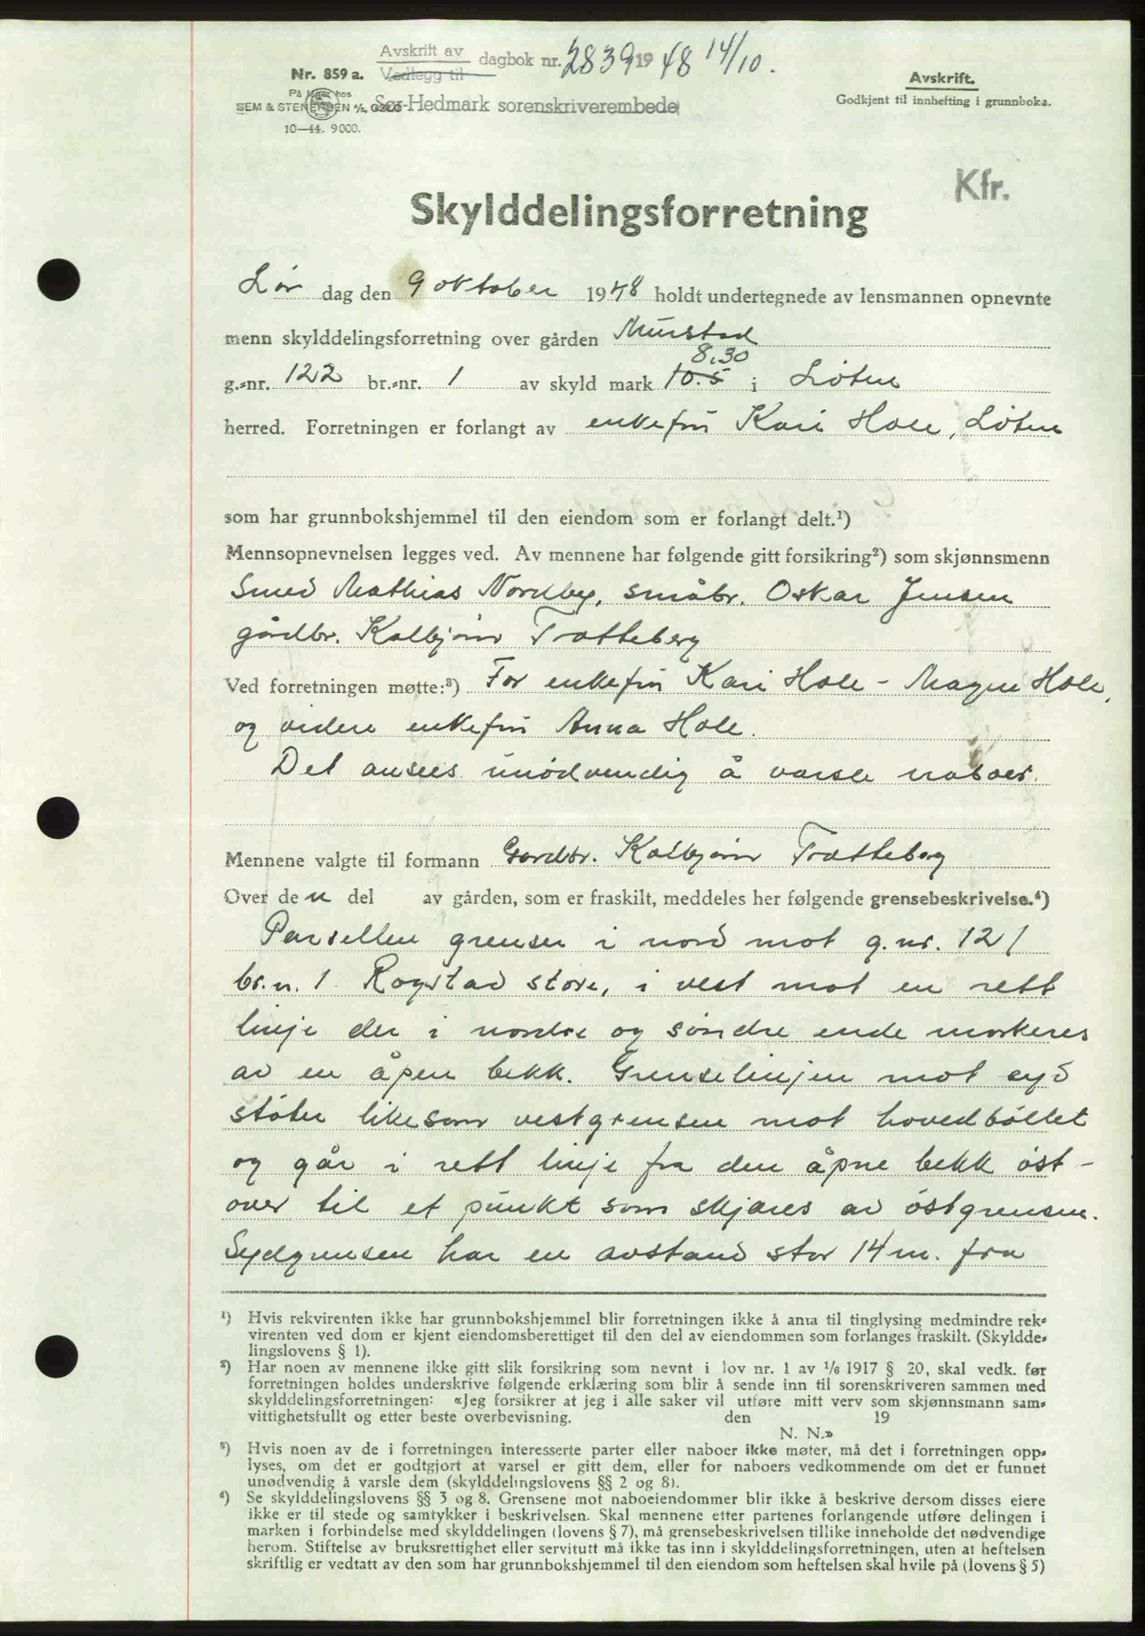 Avskrift av
Vedlegg til dagbok nr. 2839 1948 14/10.
Nr. 859 a.
På lager hos
SEM & STENERSEN A/S, OSLO
10—44. 9000.
Sør-Hedmark sorenskriverembede
Avskrift.
Godkjent til innhefting i grunnboka.
Kfr.
Skylddelingsforretning
Lør dag den 9 oktober 1948 holdt undertegnede av lensmannen opnevnte
menn skylddelingsforretning over gården Murstad
8,30
g.-nr. 122 br.-nr. 1 av skyld mark 10.5 i Løten
herred. Forretningen er forlangt av enkefru Kari Hole, Løten
som har grunnbokshjemmel til den eiendom som er forlangt delt.¹)
Mennsopnevnelsen legges ved. Av mennene har følgende gitt forsikring²) som skjønnsmenn
Smed Mathias Nordby, småbr. Oskar Jensen
gårdbr. Kolbjørn Trotteberg
Ved forretningen møtte:³) For enkefru Kari Hole - Magne Hole,
og videre enkefru Anna Hole.
Det ansees unødvendig å varsle naboer.
Mennene valgte til formann Gardbr. Kolbjørn Trotteberg
Over den del av gården, som er fraskilt, meddeles her følgende grensebeskrivelse.⁴)
Parsellen grenser i nord mot g.nr. 121
br.n. 1 Rogstad store, i vest mot en rett
linje der i nordre og søndre ende markeres
av en åpen bekk. Grenselinjen mot syd
støter likesom vestgrensen mot hovedbøllet
og går i rett linje fra den åpne bekk øst-
over til et punkt som skjæres av østgrensen.
Sydgrensen har en avstand stor 14 m. fra
¹) Hvis rekvirenten ikke har grunnbokshjemmel blir forretningen ikke å anta til tinglysing medmindre rek-
virenten ved dom er kjent eiendomsberettiget til den del av eiendommen som forlanges fraskilt. (Skyldde-
lingslovens § 1).
²) Har noen av mennene ikke gitt slik forsikring som nevnt i lov nr. 1 av 1/6 1917 § 20, skal vedk. før
forretningen holdes underskrive følgende erklæring som blir å sende inn til sorenskriveren sammen med
skylddelingsforretningen: «Jeg forsikrer at jeg i alle saker vil utføre mitt verv som skjønnsmann sam-
vittighetsfullt og etter beste overbevisning. den 19
N. N.»
³) Hvis noen av de i forretningen interesserte parter eller naboer ikke møter, må det i forretningen opp-
lyses, om det er godtgjort at varsel er gitt dem, eller for naboers vedkommende om det er funnet
unødvendig å varsle dem (skylddelingslovens §§ 2 og 8).
⁴) Se skylddelingslovens §§ 3 og 8. Grensene mot naboeiendommer blir ikke å beskrive dersom disses eiere
ikke er til stede og samtykker i beskrivelsen. Skal mennene etter partenes forlangende utføre delingen i
marken i forbindelse med skylddelingen (lovens § 7), må grensebeskrivelsen tillike inneholde det nødvendige
herom. Stiftelse av bruksrettighet eller servitutt må ikke tas inn i skylddelingsforretningen, uten at heftelsen
skriftlig er vedtatt av den som har grunnbokshjemmel til den eiendom som heftelsen skal hvile på (lovens § 5)